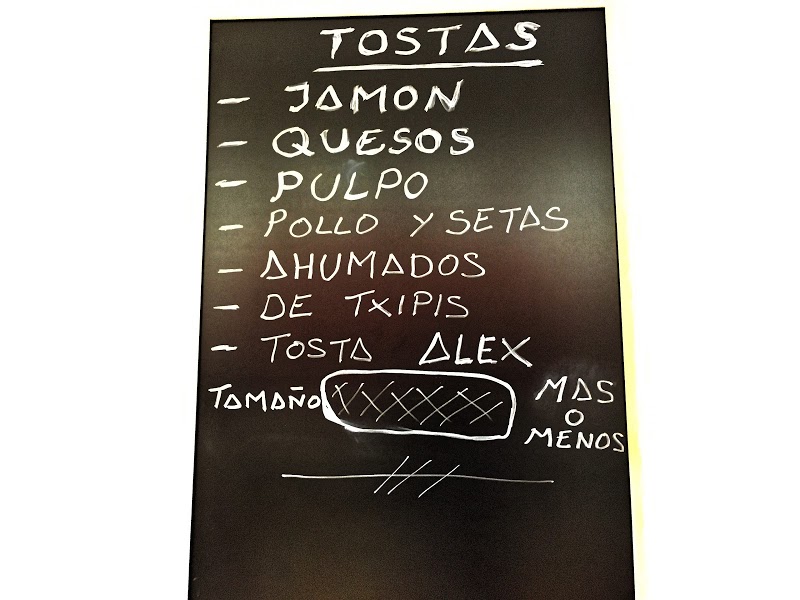 TOSTAS
- JAMON
- QUESOS
- PULPO
- POLLO Y SETAS
- AHUMADOS
- DE TXIPIS
- TOSTA ALEX
TAMAÑO MAS O MENOS